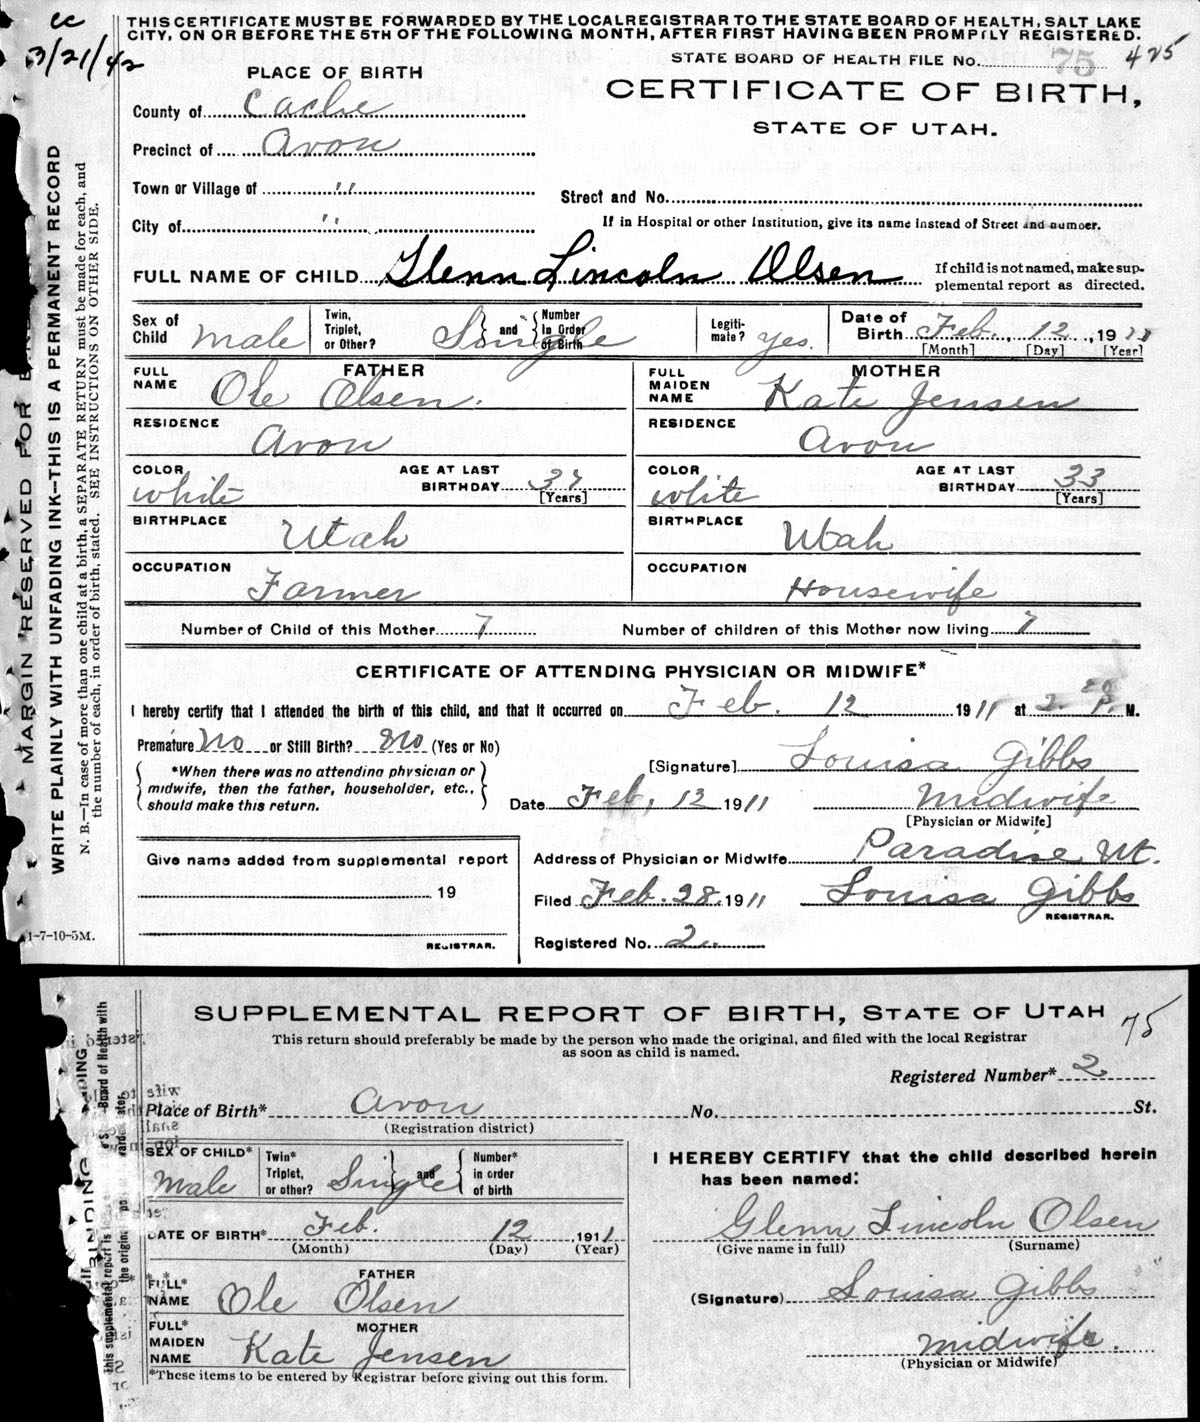 cc
3/21/42
THIS CERTIFICATE MUST BE FORWARDED BY THE LOCAL REGISTRAR TO THE STATE BOARD OF HEALTH, SALT LAKE
CITY, ON OR BEFORE THE 5TH OF THE FOLLOWING MONTH, AFTER FIRST HAVING BEEN PROMPTLY REGISTERED.
STATE BOARD OF HEALTH FILE No. 75 425
PLACE OF BIRTH
CERTIFICATE OF BIRTH,
STATE OF UTAH.
County of Cache
Precinct of Avon
Town or Village of "
Street and No.
City of "
If in Hospital or other Institution, give its name instead of Street and number.
FULL NAME OF CHILD Glenn Lincoln Olsen
If child is not named, make sup-
plemental report as directed.
Sex of Child male
Twin, Triplet, or Other? Single and Number In Order of Birth
Legiti-mate? yes.
Date of Birth Feb. 12, 1911
[Month] [Day] [Year]
FATHER
FULL NAME Ole Olsen.
RESIDENCE Avon
COLOR white AGE AT LAST BIRTHDAY 37 [Years]
BIRTHPLACE Utah
OCCUPATION Farmer
MOTHER
FULL MAIDEN NAME Kate Jensen
RESIDENCE Avon
COLOR white AGE AT LAST BIRTHDAY 33 [Years]
BIRTHPLACE Utah
OCCUPATION Housewife
Number of Child of this Mother 7 Number of children of this Mother now living 7
CERTIFICATE OF ATTENDING PHYSICIAN OR MIDWIFE*
I hereby certify that I attended the birth of this child, and that it occurred on Feb. 12 1911 at 2.20 P. M.
Premature No or Still Birth? No (Yes or No)
*When there was no attending physician or
midwife, then the father, householder, etc.,
should make this return.
[Signature] Louisa Gibbs
Date Feb, 12 1911 Midwife
[Physician or Midwife]
Give name added from supplemental report
19
REGISTRAR.
Address of Physician or Midwife Paradise Ut.
Filed Feb. 28. 1911 Louisa Gibbs
REGISTRAR.
Registered No. 2
MARGIN RESERVED FOR
WRITE PLAINLY WITH UNFADING INK—THIS IS A PERMANENT RECORD
N. B.—In case of more than one child at a birth, a SEPARATE RETURN must be made for each, and
the number of each, in order of birth, stated. SEE INSTRUCTIONS ON OTHER SIDE.
1-7-10-5M.
SUPPLEMENTAL REPORT OF BIRTH, STATE OF UTAH
75
This return should preferably be made by the person who made the original, and filed with the local Registrar
as soon as child is named.
Registered Number* 2
Place of Birth* Avon No. St.
(Registration district)
SEX OF CHILD* Male
Twin* Triplet, or other? Single and Number* in order of birth
DATE OF BIRTH* Feb. 12 1911
(Month) (Day) (Year)
FATHER
FULL* NAME Ole Olsen
MOTHER
FULL* MAIDEN NAME Kate Jensen
*These items to be entered by Registrar before giving out this form.
I HEREBY CERTIFY that the child described herein
has been named:
Glenn Lincoln Olsen
(Give name in full) (Surname)
(Signature) Louisa Gibbs
Midwife.
(Physician or Midwife)